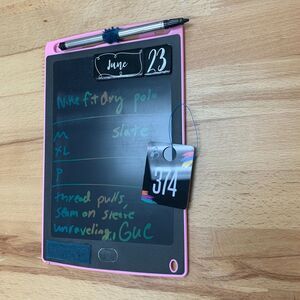 June 23
Nike fit Dry polo
M slate
XL
P
374
thread pulls,
seam on sleeve
unraveling, GUC